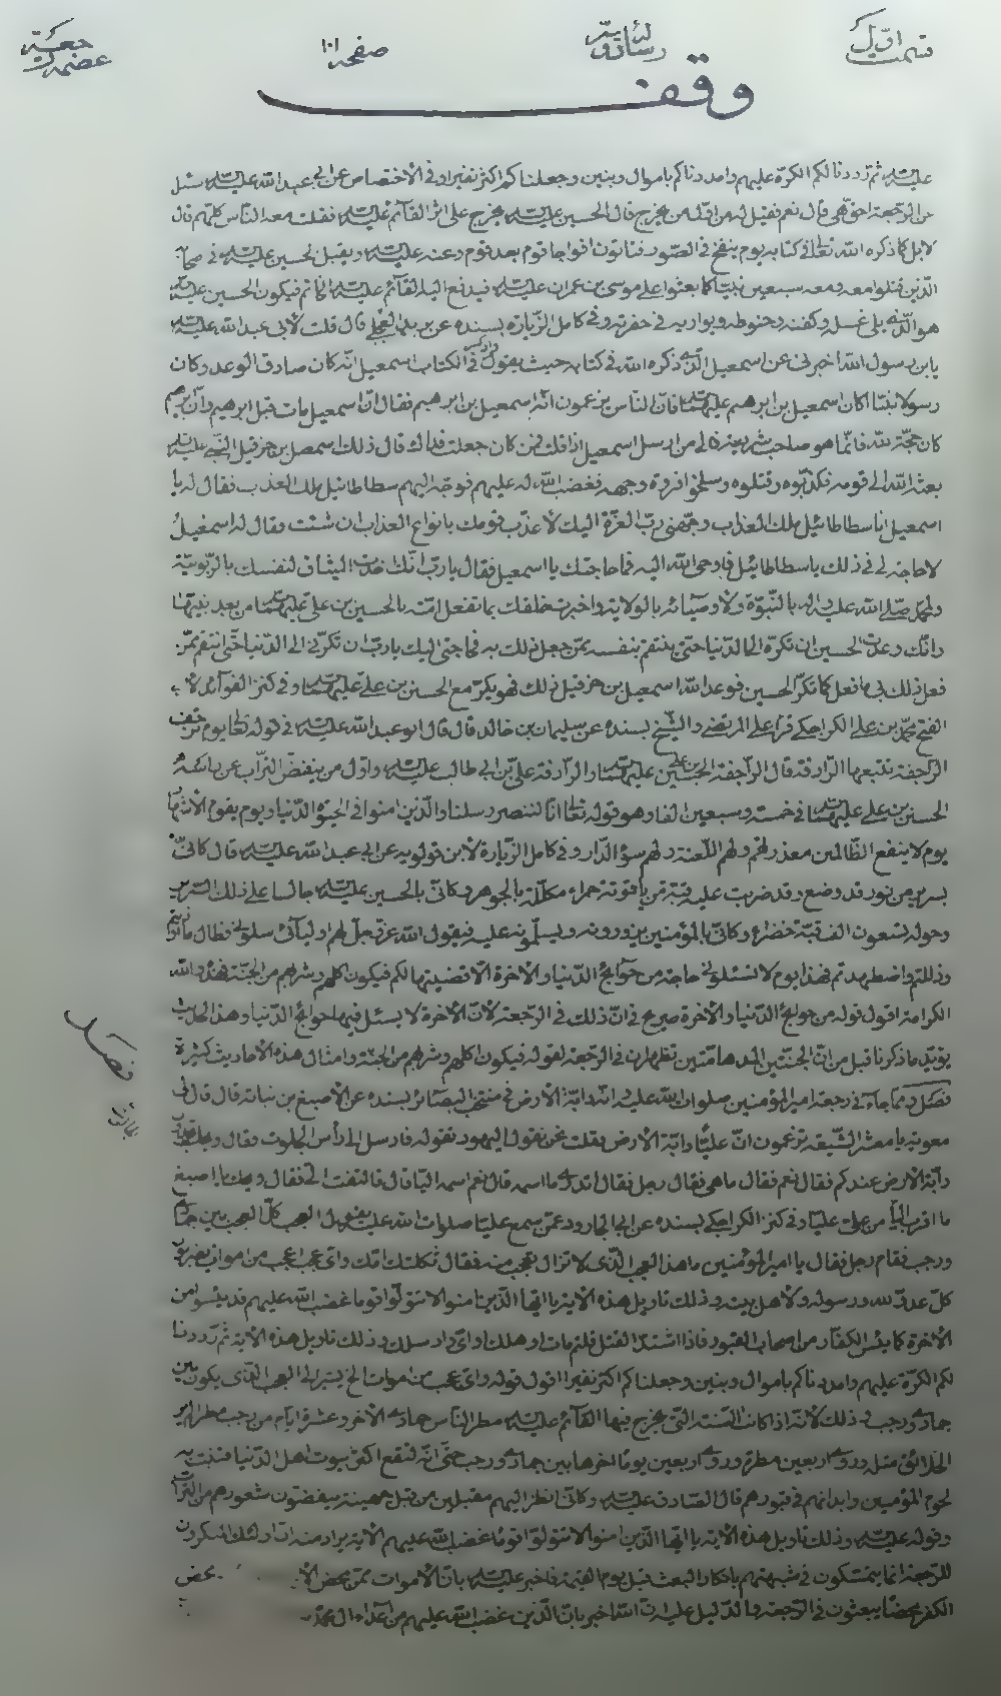 قسمت اوّل
رسالة
صفحه ١٠١
عصمة رجعت
وقف
عليهم ثم رددنا لكم الكرّة عليهم وامددناكم باموال وبنين وجعلناكم اكثر نفيرا وفي الاختصاص عن ابي عبد الله عليه السلام سئل
عن الرّجعة احقّ هي قال نعم فقيل له من اوّل من يخرج قال الحسين عليه السلام يخرج على اثر القائم عليه السلام فقلت معه الناس كلّهم قال
لا بل كما ذكره الله تعالى في كتابه يوم ينفخ في الصّور فتاتون افواجا قوم بعد قوم وعنه عليه السلام ويقبل الحسين عليه السلام في اصحابه
الّذين قتلوا معه ومعه سبعين نبيّا كما بعثوا على موسى بن عمران عليه السلام فيدفع اليه القائم عليه السلام الخاتم فيكون الحسين عليه السلام
هو الّذي يلي غسله وكفنه وحنوطه ويواريه في حفرته وفي كامل الزّيارة بسنده عن بريد العجلي قال قلت لابي عبد الله عليه السلام
يا بن رسول الله اخبرني عن اسمعيل الّذي ذكره الله في كتابه حيث يقول واذكر في الكتاب اسمعيل انّه كان صادق الوعد وكان
رسولا نبيّا اكان اسمعيل بن ابرهيم عليهما السلام فانّ الناس يزعمون انّه اسمعيل بن ابرهيم فقال انّ اسمعيل مات قبل ابرهيم وانّ ابرهيم
كان حجّة لله قائما هو صاحب شريعة فالى من ارسل اسمعيل اذا قلت فمن كان جعلت فداك قال ذلك اسمعيل بن حزقيل النّبي عليه السلام
بعثه الله الى قومه فكذّبوه وقتلوه وسلخوا فروة وجهه فغضب الله له عليهم فوجّه اليهم سطاطائيل ملك العذاب فقال له يا
اسمعيل انا سطاطائيل ملك العذاب وجّهني ربّ العزّة اليك لاعذّب قومك بانواع العذاب ان شئت فقال له اسمعيل
لا حاجة لي في ذلك يا سطاطائيل فاوحى الله اليه فما حاجتك يا اسمعيل فقال يا ربّ انّك اخذت الميثاق لنفسك بالرّبوبيّة
ولمحمّد صلّى الله عليه واله بالنّبوّة ولاوصيائه بالولاية واخبرت خلقك بما تفعل امّته بالحسين بن علي عليهما السلام من بعد نبيّها
وانّك وعدت الحسين ان تكرّه الى الدّنيا حتّى ينتقم بنفسه ممّن جعل ذلك به فحاجتي اليك يا ربّ ان تكرّني الى الدّنيا حتّى انتقم ممّن
فعل ذلك بي ما فعل كما تكرّ الحسين فوعد الله اسمعيل بن حزقيل ذلك فهو يكرّ مع الحسين بن علي عليهما السلام وفي كنز الفوائد لابي
الفتح محمّد بن علي الكراجكي قراء على المرتضى والشّيخ بسنده عن سليمان بن خالد قال قال ابو عبد الله عليه السلام في قوله تعالى يوم ترجف
الرّاجفة تتبعها الرّادفة قال الرّاجفة الحسين بن علي عليهما السلام والرّادفة علي بن ابي طالب عليه السلام واوّل من ينفض التّراب عن راسه
الحسين بن علي عليهما السلام في خمسة وسبعين الفا وهو قوله تعالى انّا لننصر رسلنا والّذين امنوا في الحيوة الدّنيا ويوم يقوم الاشهاد
يوم لا ينفع الظّالمين معذرتهم ولهم اللّعنة ولهم سوء الدّار وفي كامل الزّيارة لابن قولويه عن ابي عبد الله عليه السلام قال كانّي
بسرير من نور قد وضع وقد ضربت عليه قبّة من ياقوتة حمراء مكلّلة بالجوهر وكانّي بالحسين عليه السلام جالسا على ذلك السّرير
وحوله تسعون الف قبّة خضراء وكانّي بالمؤمنين يزورونه ويسلّمون عليه فيقول الله عزّ وجلّ لهم اوليائي سلوني فطال ما اوذيتم
وذللتم واضطهدتم فهذا يوم لا تسئلوني حاجة من حوائج الدّنيا والاخرة الّا قضيتها لكم فيكون اكلهم وشربهم من الجنّة فهذه والله
الكرامة اقول قوله من حوائج الدّنيا والاخرة صريح في انّ ذلك في الرّجعة لانّ الاخرة لا يسئل فيها حوائج الدّنيا وهذا الحديث
يؤيّد ما ذكرنا قبل من انّ الجنّتين المدهامّتين تظهران في الرّجعة لقوله فيكون اكلهم وشربهم من الجنّة وامثال هذه الاحاديث كثيرة
فصل وممّا جاء في رجعة امير المؤمنين صلوات الله عليه وانّه دابّة الارض في منتخب البصائر بسنده عن الاصبغ بن نباتة قال قال لي
معوية يا معشر الشّيعة تزعمون انّ عليّا دابّة الارض فقلت نحن نقول اليهود تقوله فارسل الى رأس الجالوت فقال ويحك تجدون
دابّة الارض عندكم فقال نعم فقال ما هي فقال رجل فقال اتدري ما اسمه قال نعم اسمه اليا قال فالتفت اليّ فقال ويحك يا اصبغ
ما اقرب اليا من علي عليّا وفي كنز الكراجكي بسنده عن ابي الجارود عمّن سمع عليّا صلوات الله عليه يقول العجب كلّ العجب بين جمادى
ورجب فقام رجل فقال يا امير المؤمنين ما هذا العجب الّذي لا تزال تعجب منه فقال ثكلتك امّك واي عجب اعجب من اموات يضربون
كلّ عدوّ لله ورسوله ولاهل بيته وذلك تاويل هذه الاية يا ايّها الّذين امنوا لا تتولّوا قوما غضب الله عليهم قد يئسوا من
الاخرة كما يئس الكفّار من اصحاب القبور فاذا اشتدّ القتل قلتم مات او هلك او اي واد سلك وذلك تاويل هذه الاية ثم رددنا
لكم الكرّة عليهم وامددناكم باموال وبنين وجعلناكم اكثر نفيرا اقول قوله واي عجب من اموات الخ يشير الى العجب الّذي يكون بين
جمادى ورجب وذلك لانّه اذا كانت السّنة الّتي يخرج فيها القائم عليه السلام مطر النّاس جمادى الاخر وعشرة ايّام من رجب مطرا لم ير
الخلائق مثله وروي اربعين مطرة وروي اربعين يوما اخرها بين جمادى ورجب حتّى انّه لتقع اكثر بيوت اهل الدّنيا فتنبت به
لحوم المؤمنين وابدانهم في قبورهم قال الصّادق عليه السلام وكانّي انظر اليهم مقبلين من قبل جهينة ينفضون شعورهم من التّراب
وقوله عليه السلام وذلك تاويل هذه الاية يا ايّها الّذين امنوا لا تتولّوا قوما غضب الله عليهم الاية يراد منه انّ اولئك المنكرون
للرّجعة انّما يتمسّكون في شبهتهم بانكار البعث قبل يوم القيمة فاخبر عليه السلام بانّ الاموات ممّن محض الا محض
الكفر محضا يبعثون في الرّجعة والدّليل عليه انّ الله اخبر بانّ الّذين غضب الله عليهم من اعداء ال محمّد
فصل